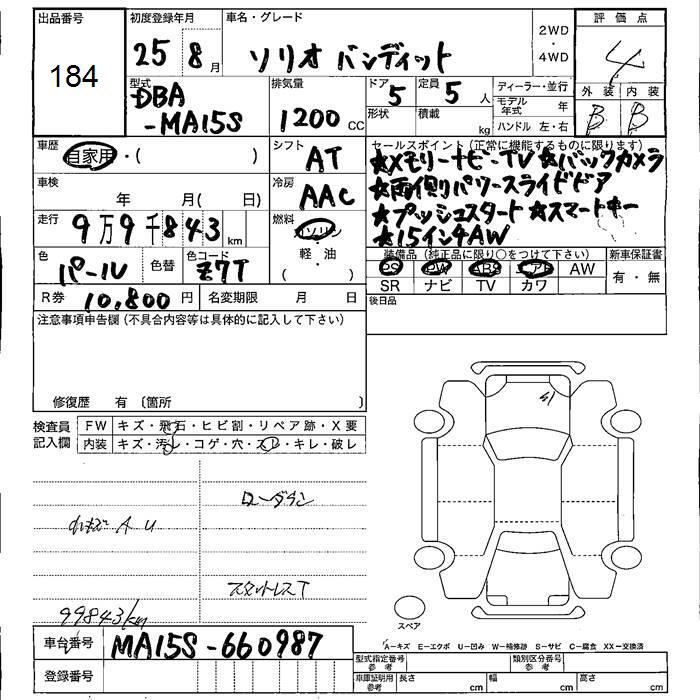 出品番号
184
初度登録年月
25 8月
車名・グレード
ソリオ バンディット
2WD
・
4WD
評価点
4
外装 内装
B B
型式
DBA
-MA15S
排気量
1200 CC
ドア
5
形状
定員
5 人
積載
kg
ディーラー・並行
モデル年式 年
ハンドル 左・右
車歴
自家用・( )
シフト
AT
セールスポイント(正常に機能するものに限ります)
★メモリーナビ・TV ★バックカメラ
★両側パワースライドドア
★プッシュスタート ★スマートキー
★15インチAW
車検
年 月( 日)
冷房
AAC
走行
9万9千843 km
燃料
ガソリン
・
軽・油
( )
色
パール
色替
色コード
Z7T
装備品(純正品に限り○をつけて下さい)
PS PW ABS エアB AW
SR ナビ TV カワ
新車保証書
有・無
R券 10,800 円
名変期限 月 日
後日品
注意事項申告欄(不具合内容等は具体的に記入して下さい)
修復歴 有 (箇所 )
検査員
記入欄
FW キズ・飛石・ヒビ割・リペア跡・X要
内装 キズ・汚レ・コゲ・穴・スレ・キレ・破レ
ローダウン
A U
スタットレスT
99843km
スペア
車台番号
MA15S-660987
登録番号
A－キズ E－エクボ U－凹み W－補修跡 S－サビ C－腐食 XX－交換済
型式指定番号
参考
類別区分番号
参考
車庫証明用
参考
長さ cm 幅 cm 高さ cm